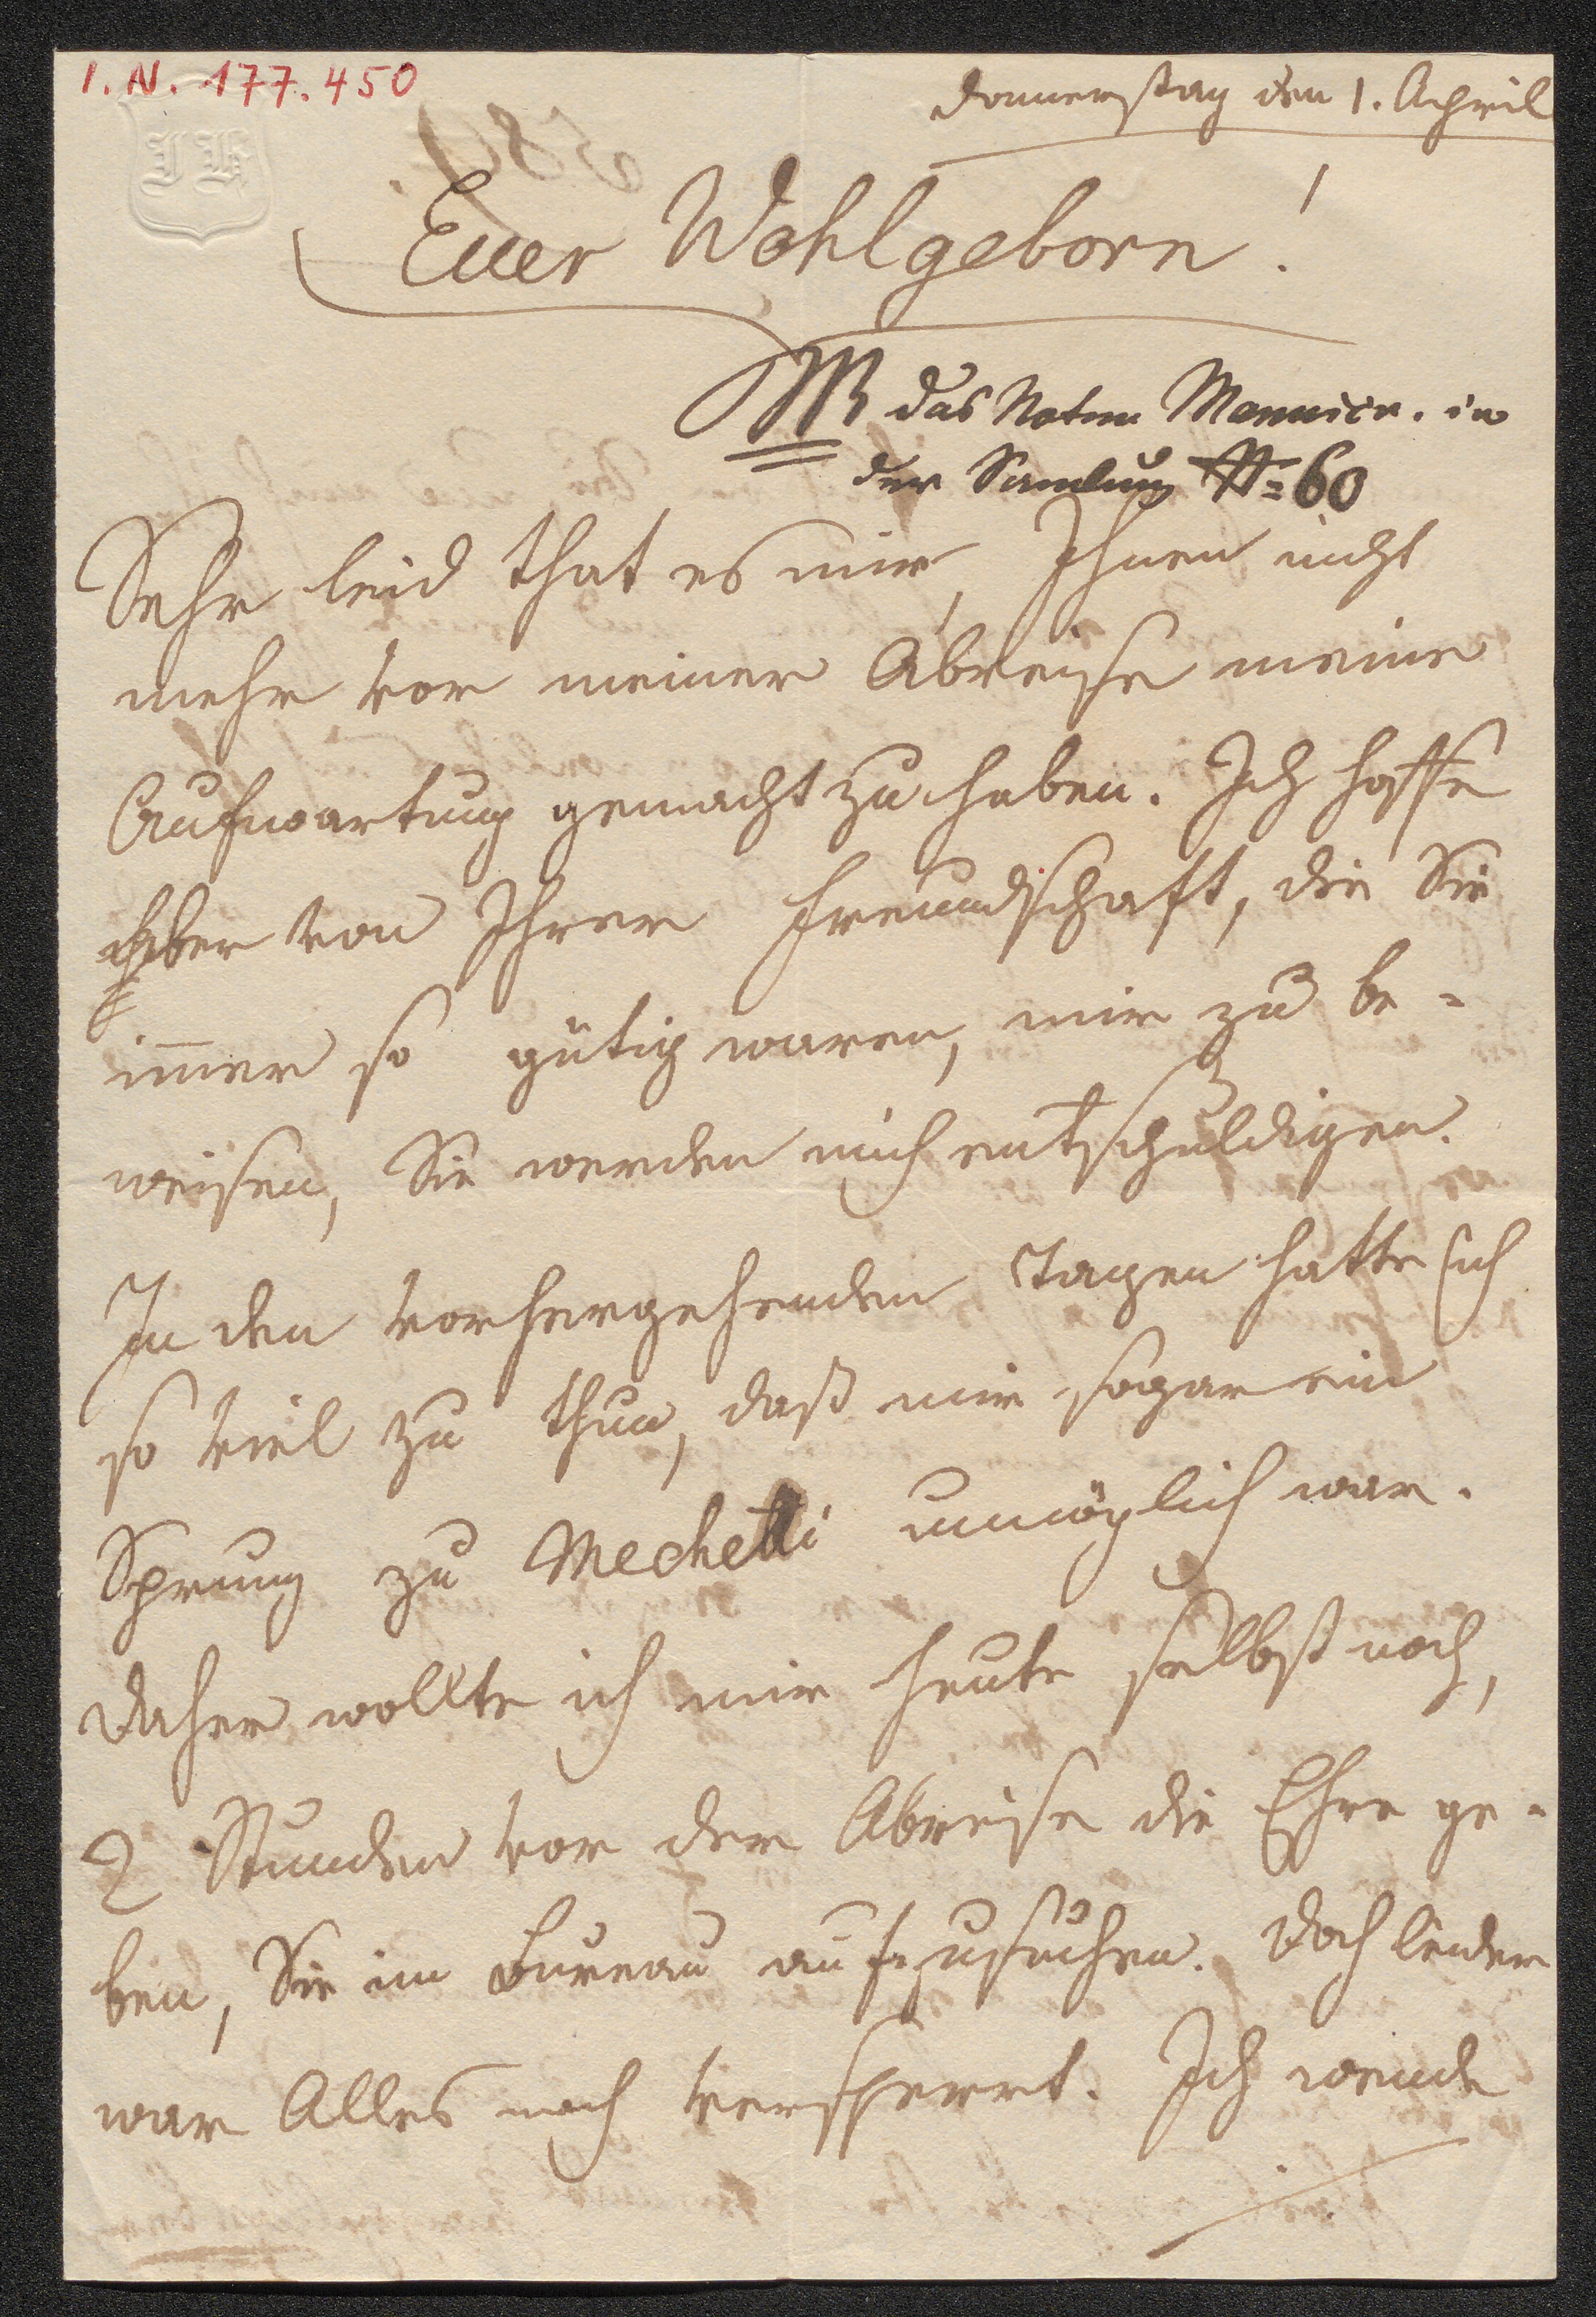 I. N. 177.450
Donnerstag den 1. April
Euer Wohlgeborn!
NB das Noten Manuscr. in
der Samlung N= 60
Sehr leid that es mir, Ihnen nicht
mehr vor meiner Abreise meine
Aufwartung gemacht zu haben. Ich hoffe
aber von Ihrer Freundschaft, die Sie
im̄er so gütig waren, mir zu be-
weisen, Sie werden mich entschuldigen.
In den vorhergehenden Tagen hatte ich
so viel zu thun, daß mir sogar ein
Sprung zu Mechetti unmöglich war.
Daher wollte ich mir heute selbst noch,
2 Stunden vor der Abreise die Ehre ge-
ben, Sie im Bureau aufzusuchen. Doch leider
war Alles noch versperrt. Ich wende